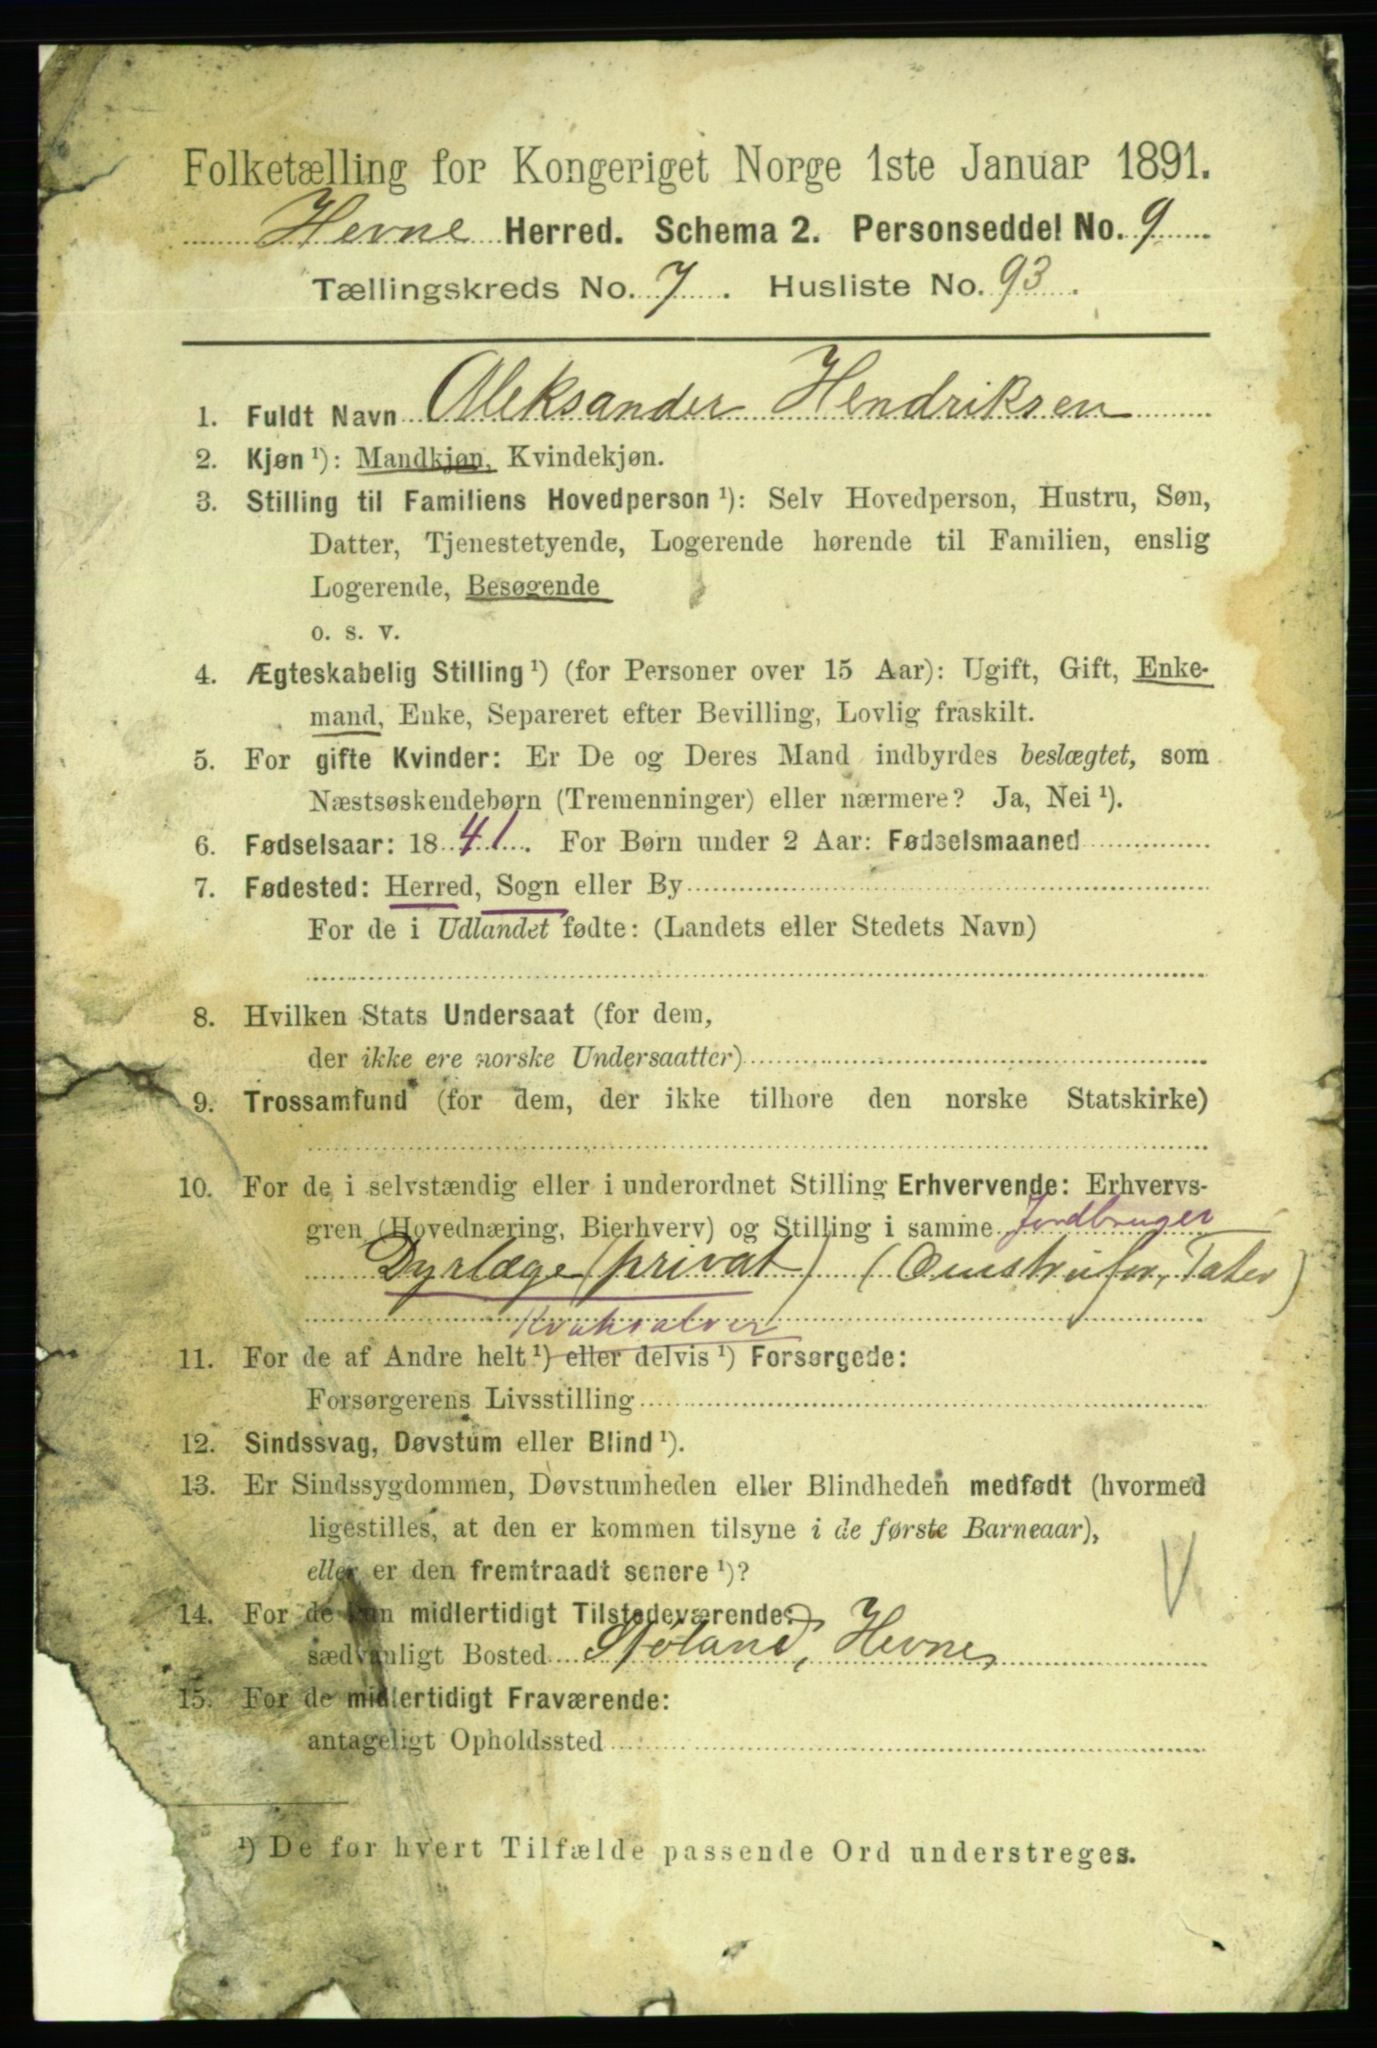 Folketælling for Kongeriget Norge 1ste Januar 1891.
Hevne Herred. Schema 2. Personseddel No. 9
Tællingskreds No. 7. Husliste No. 93.
1. Fuldt Navn Aleksander Hendriksen
2. Kjøn ¹): Mandkjøn, Kvindekjøn.
3. Stilling til Familiens Hovedperson ¹): Selv Hovedperson, Hustru, Søn,
Datter, Tjenestetyende, Logerende hørende til Familien, enslig
Logerende, Besøgende
o. s. v.
4. Ægteskabelig Stilling ¹) (for Personer over 15 Aar): Ugift, Gift, Enke-
mand, Enke, Separeret efter Bevilling, Lovlig fraskilt.
5. For gifte Kvinder: Er De og Deres Mand indbyrdes beslægtet, som
Næstsøskendebørn (Tremenninger) eller nærmere? Ja, Nei ¹).
6. Fødselsaar: 1841. For Børn under 2 Aar: Fødselsmaaned
7. Fødested: Herred, Sogn eller By
For de i Udlandet fødte: (Landets eller Stedets Navn)
8. Hvilken Stats Undersaat (for dem,
der ikke ere norske Undersaatter)
9. Trossamfund (for dem, der ikke tilhøre den norske Statskirke)
10. For de i selvstændig eller i underordnet Stilling Erhvervende: Erhvervs-
gren (Hovednæring, Bierhverv) og Stilling i samme Jordbruger
Dyrlæge (privat) (Omstreifer, Tater)
Kvaksalver
11. For de af Andre helt ¹) eller delvis ¹) Forsørgede:
Forsørgerens Livsstilling
12. Sindssvag, Døvstum eller Blind ¹).
13. Er Sindssygdommen, Døvstumheden eller Blindheden medfødt (hvormed
ligestilles, at den er kommen tilsyne i de første Barneaar),
eller er den fremtraadt senere ¹)?
14. For de kun midlertidigt Tilstedeværende:
sædvanligt Bosted Støland, Hevne
15. For de midlertidigt Fraværende:
antageligt Opholdssted
¹) De for hvert Tilfælde passende Ord understreges.